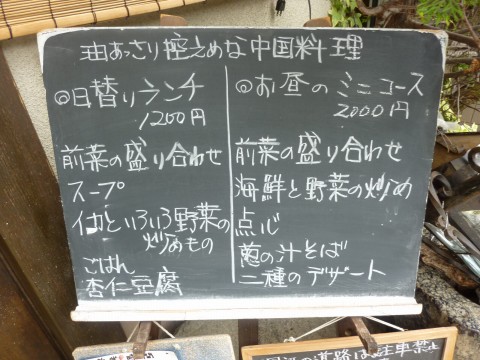 油あっさり控えめな中国料理
◎日替りランチ
1200円
前菜の盛り合わせ
スープ
イカといろいろ野菜の
炒めもの
ごはん
杏仁豆腐
◎お昼のミニコース
2000円
前菜の盛り合わせ
海鮮と野菜の炒め
点心
葱の汁そば
二種のデザート
の道路は駐車禁止